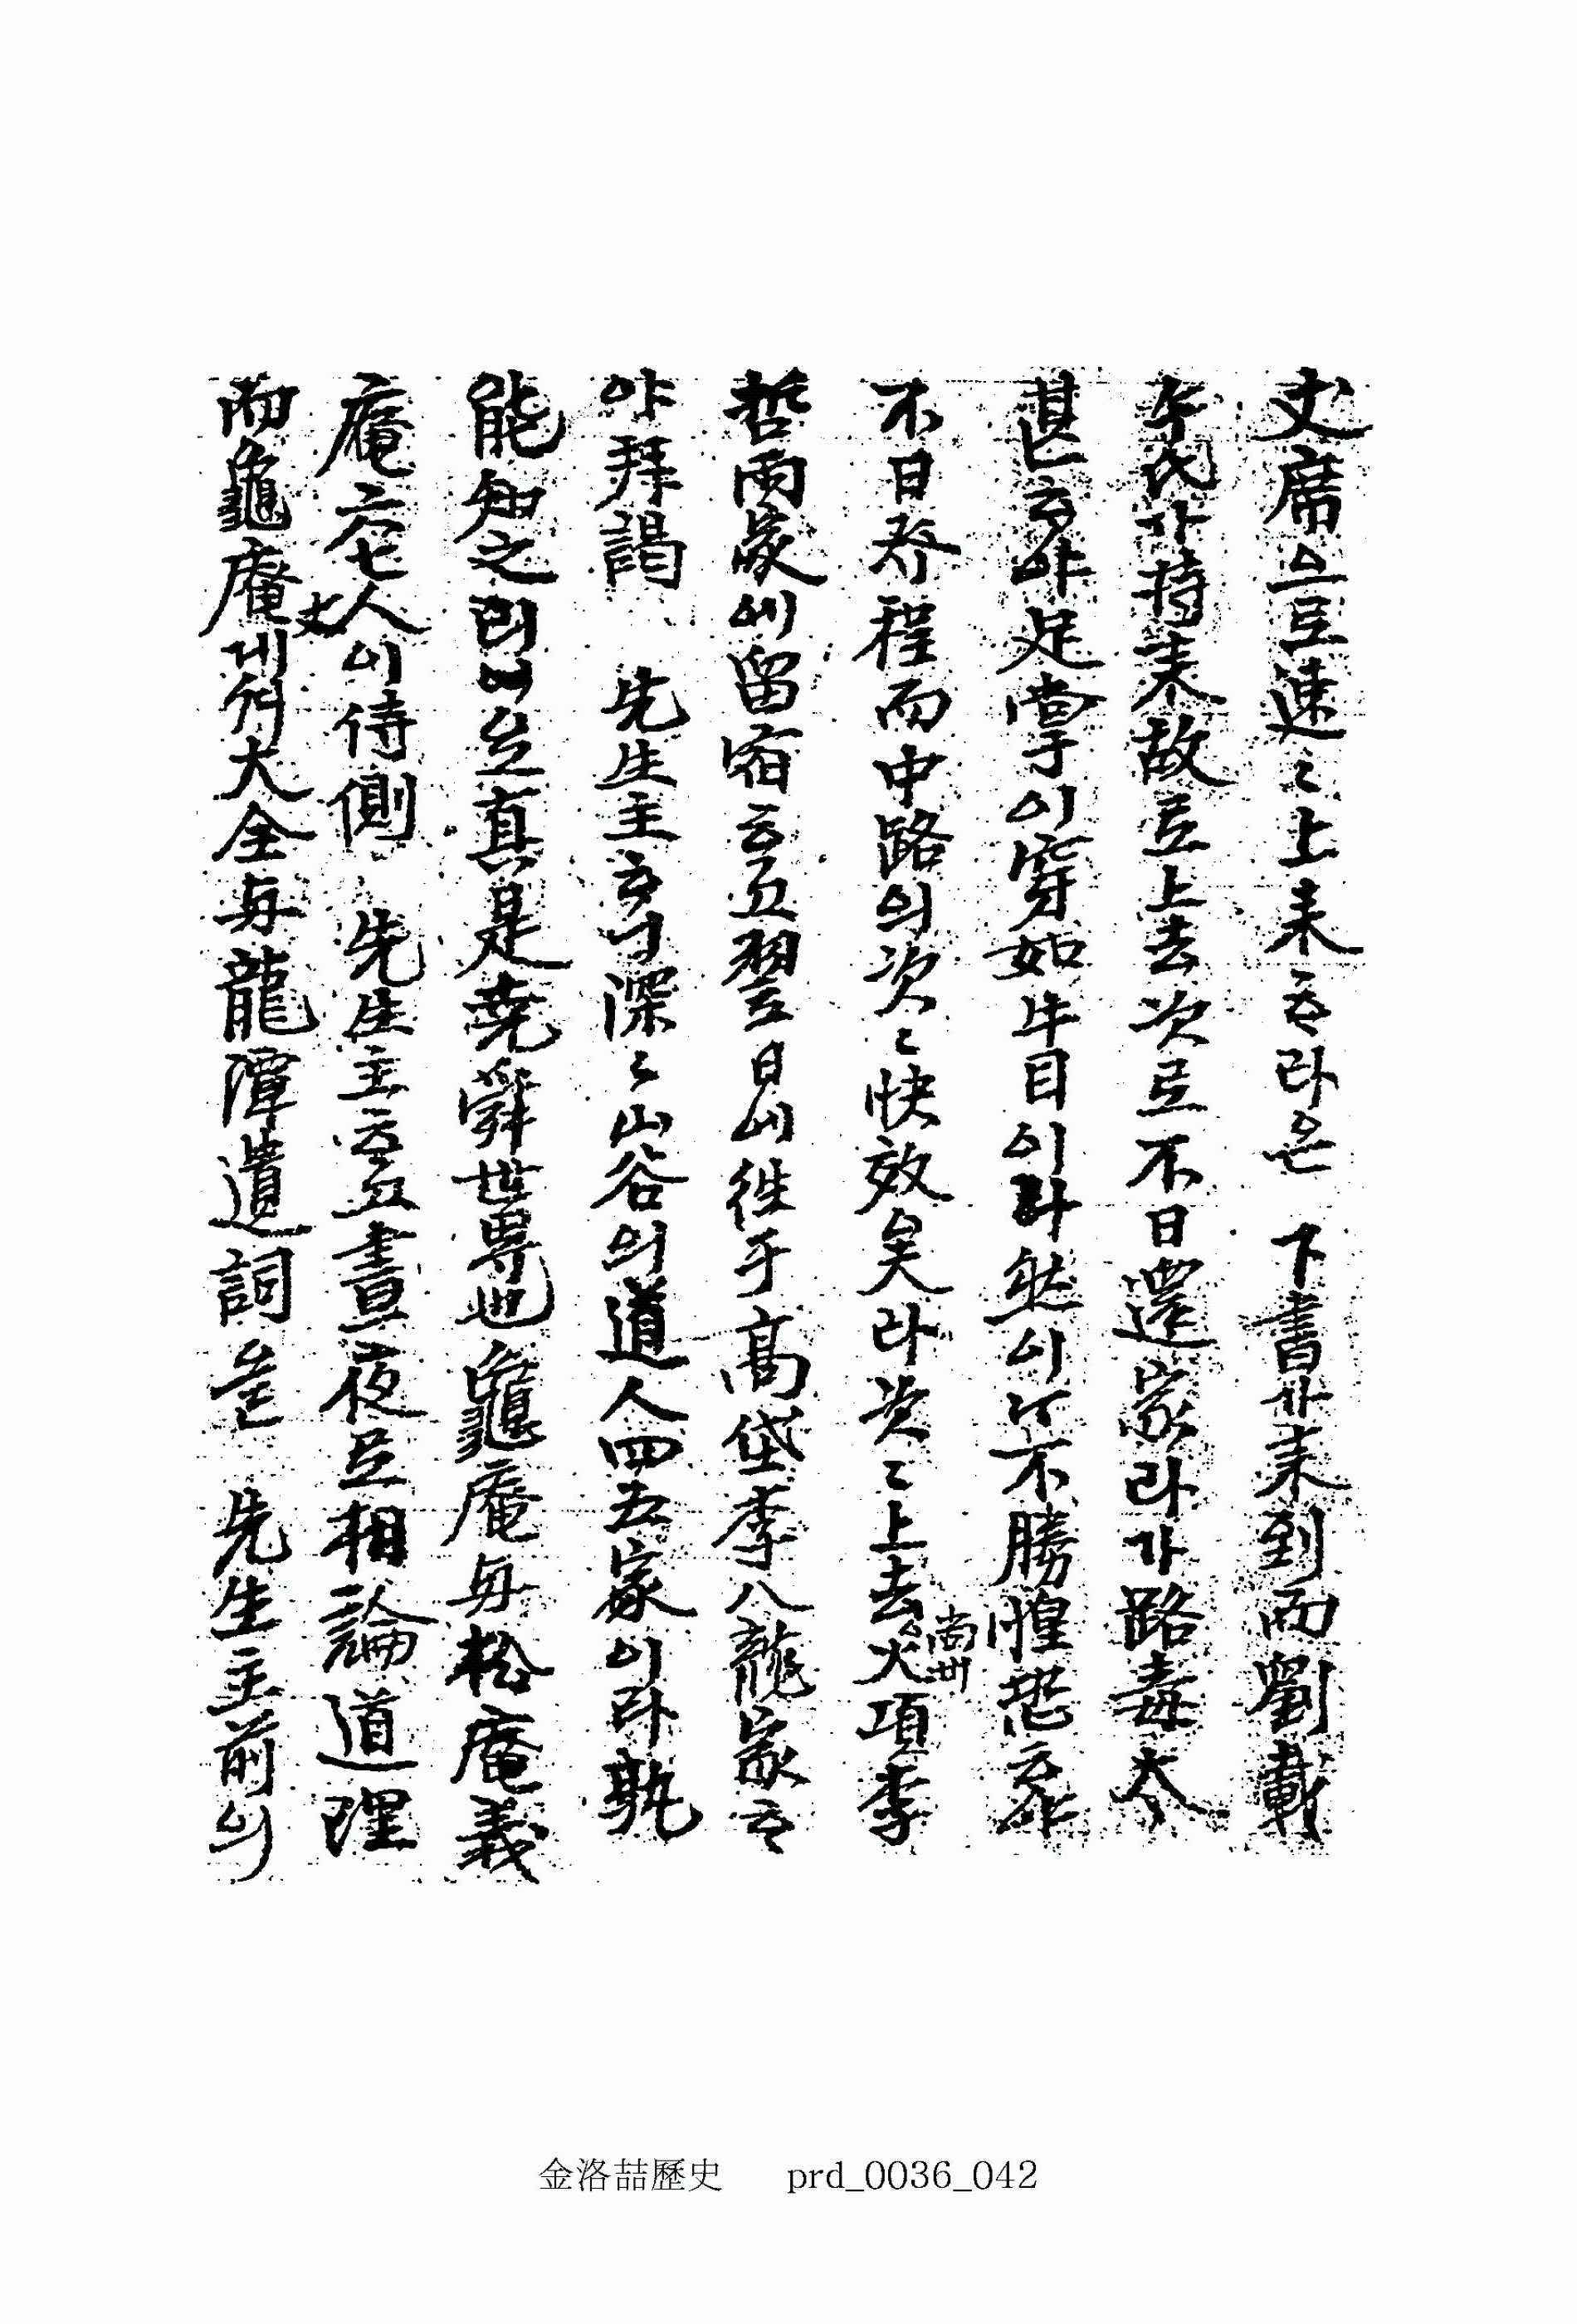 丈席으로速々上来하라은 下書가来到而劉載
午氏가持来故로上去次로不日還家라가路毒太
甚하야足掌이穿如牛目이라然이나不勝惶恐하야
不日登程而中路의次々快效矣라次々上去尙州火項李
哲雨家에留宿하고翌日에往于高垈李八龍家하
야拜謁 先生主하니深々山谷의道人四五家이라孰
能知之리요真是堯舜世界也龜庵与松庵義
庵六七人丈이侍側 先生主하고晝夜로相論道理
而龜庵게大全与龍潭遺詞를 先生主前의